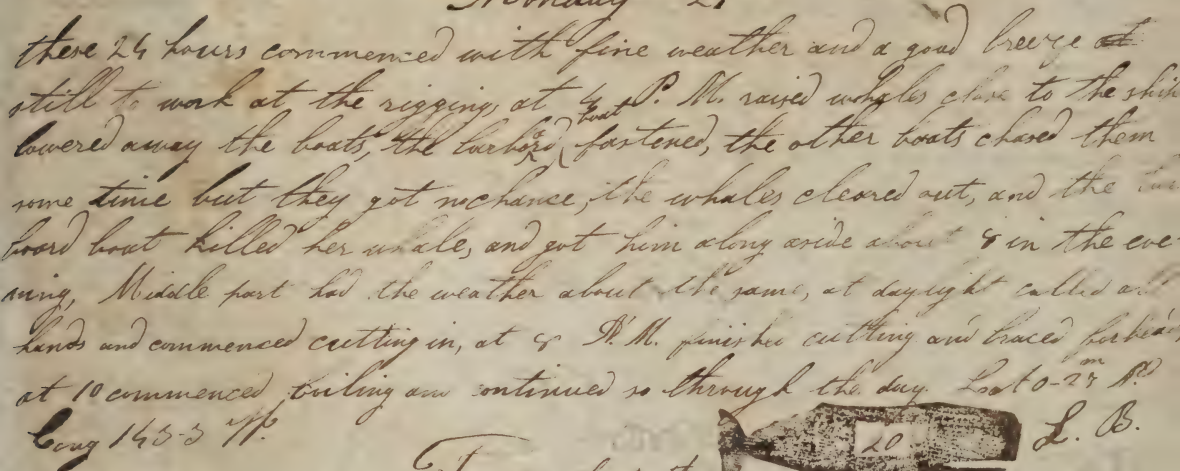 Monday 21
these 24 hours commenced with fine weather and a good breeze
still to work at the rigging, at 4 P. M. raised whales close to the ship
lowered away the boats, the larboard boat fastened, the other boats chased them
some time but they got no chance, the whales cleared out, and the
board boat killed her whale, and got him along aside about 8 in the eve-
ning, Middle part had the weather about the same, at daylight called all
hands and commenced cutting in, at 8 A. M. finished cutting and braced
at 10 commenced boiling and continued so through the day
Long 143-3 W.
20
L. B.